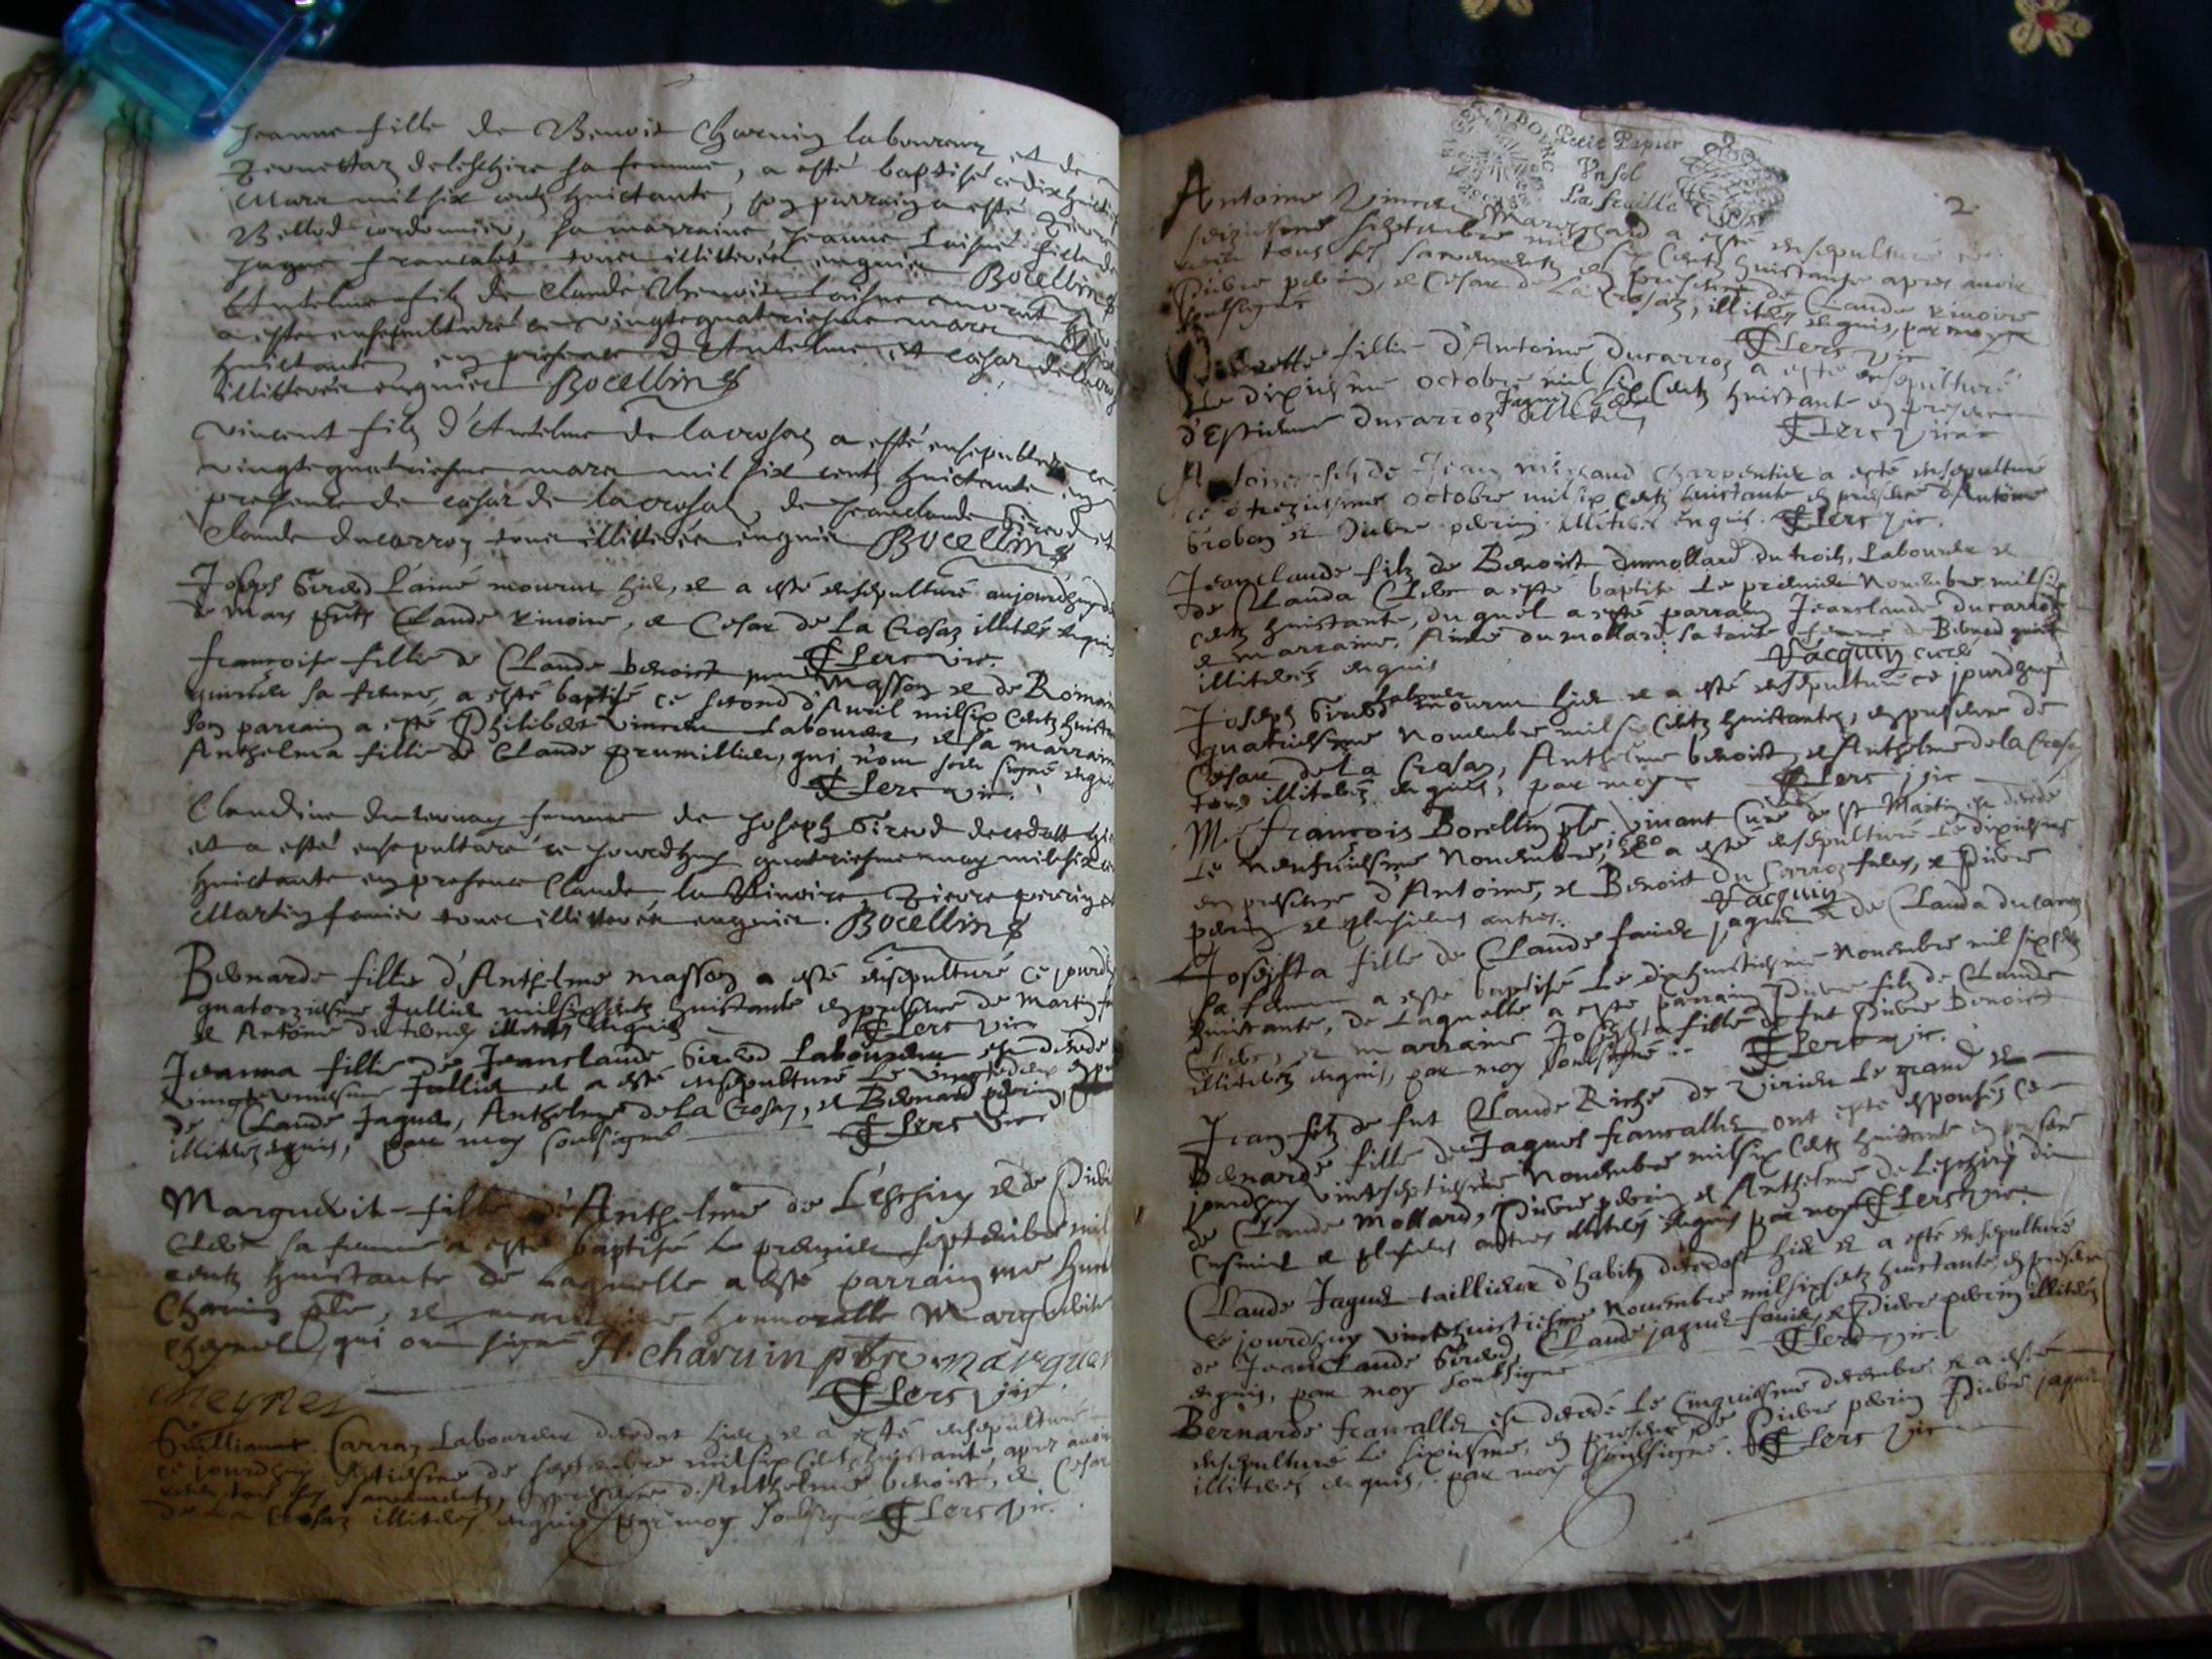 Jeanne fille de Benoit Charvin laboureur et de
sa femme, a esté baptisé ce dixhuict
Mars mil six centz huictante, son parrain a esté
cordonnier, sa marraine, Jeanne fille de
Jaque francalet tous illitterés enquis Bocellin
Anthelme filz de Claude Benoit
a esté ensepulturé ce vingtequatriesme mars
huictante en presence d'Anthelme, et cesar de lacro
illitterés enquis Bocellin
Vincent filz d'Anthelme de lacrosaz a esté ensepulturé ce
vingtequatriesme mars mil six centz huictante en
presence de cesar de lacrosaz, de Jeanclaude Girod et
Claude ducarroz tous illitterés enquis Bocellin
Joseph Girod L'ainé mourut hier, et a esté ensepulturé aujourdhuy
de Mars Claude Rinoire, et Cesar de La Crosaz illiterés enquis
Clerc vic.
françoise fillie de Claude benoist Masson et de Romai
sa femme, a esté baptisé ce second d'Avril mil six centz huict
son parrain a esté Philibert Vincent Laboureur, et sa marrain
Anthelma fillie de Claude prumillieu, qui n'ont sceu signé enquis
Clerc vic.
Claudine duternay femme de Joseph Girod deceda hier
et a esté ensepulturé ce jourdhuy quatriesme may mil six c
huictante en presence Claude la Rinoire, Pierre perrin et
Martin favier tous illitterés enquis. Bocellin
Bernarde fillie d'Anthelme masson a esté ensepulturé ce jourd
quatorziesme Jullier mil six centz huictante en presence de Martin fa
et Antoine duternay illiterés enquis Clerc vic.
Jeanna fillie de Jeanclaude Girod Laboureur est decedé
vingteuniesme Jullier et a esté ensepulturé Le vingtedeux
de Claude Jaquet, Anthelme de La Crosaz, et Bernard perrin,
illiterés enquis, par moy soubsigné Clerc vic.
Marguerite fille d'Anthelme de L'eschiry et de Pier
Clerc sa femme a esté baptisé Le premier septembre mil
centz huictante de Laquelle a esté parrain
Charvin ptre, et marraine honnorable Marguerite
Cheynel, qui ont signé H. charvin ptre marguer
cheynel
Clerc vic.
Guilliaume Carraz Laboureur decedat hier, et a esté ensepulturé
ce jourdhuy septiesme de septembre mil six centz huictante, apres avoir
receu tous les sacrements, en presence d'Anthelme benoist, et Cesar
de La Crosaz illiterés enquis par moy soubsigné Clerc vic.
Petit Papier
Un sol
La feuille
2
Antoine Vincent Mareschard a esté ensepulturé ce
seiziesme septembre mil six centz huictante apres avoir
receu tous les sacrements en presence de Claude Rinoire
Pierre perrin, et Cesar de La Crosaz, illiterés enquis, par moy
soubsigné
Clerc vic
fillie d'Antoine Ducarroz a esté ensepulturé
Le dixiesme octobre mil six centz huictante en presence
d'Estienne Ducarroz Jaques Clerc illiterés
Clerc vic.
Antoine filz de Jean Charpentier a esté ensepulturé
ce treziesme octobre mil six centz huictante en presence d'Antoine
et Pierre perrin illiterés enquis. Clerc vic.
Jeanclaude filz de Benoist dumollard Laboureur et
de Clauda Clerc a esté baptisé Le premier Novembre mil six
centz huictante, duquel a esté parrain Jeanclaude ducarroz
et marraine, Aimé dumollard sa tante femme de Bernard
illiterés enquis
Jacquin curé
Joseph Girod Labour mourut hier et a esté ensepulturé ce jourdhuy
quatriesme Novembre mil six centz huictante, en presence de
Cesar de La Crosaz, Anthelme benoist, et Anthelme de la Crosaz
tous illiterés enquis, par moy Clerc vic.
Mre françois Bocellin ptre vivant Curé de st Martin est decedé
Le neufviesme Novembre, 1680 et a esté ensepulturé Le dixiesme
en presence d'Antoine, et Benoist Du Carroz, et Pierre
perrin et plusieurs autres. Jacquin
Josephta fille de Claude favier jaquet et de Clauda ducarroz
sa femme a esté baptisé Le dixhuictiesme Novembre mil six centz
huictante, de Laquelle a esté parrain Pierre filz de Claude
Clerc, et marraine Josephta fille de fut Pierre Benoist
illiterés enquis, par moy soubsigné. Clerc vic.
Jean filz de fut Claude Riche de Virieu Le grand et
Bernarde fille de Jaques francallet ont esté espousés ce
jourdhuy vinteseptiesme Novembre mil six centz huictante en presence
de Claude Mollard, Pierre perrin et Anthelme de Leschiry
et plusieurs autres illiterés enquis par moy Clerc vic.
Claude Jaquet taillieur d'habitz decedat hier et a esté ensepulturé
ce jourdhuy vintehuictiesme Novembre mil six centz huictante, en presence
de Jeanclaude Girod, Claude jaquet favier, et Pierre perrin illiterés
enquis, par moy soubsigné Clerc vic.
Bernarde francallet est decedé Le cinquiesme decembre et a esté
ensepulturé Le sixiesme, en presence de Pierre perrin Pierre jaquet
illiterés enquis, par moy soubsigné. Clerc vic